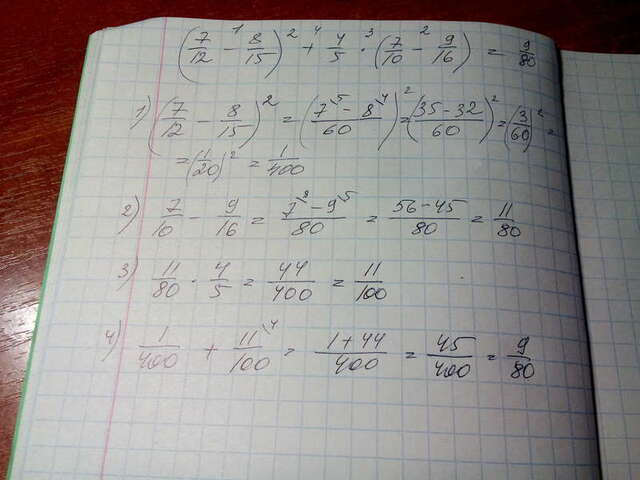 (7/12 - 8/15)² + 4/5 · (7/10 - 9/16) = 9/80
1) (7/12 - 8/15)² = (7\5 - 8\4 / 60)² = (35-32 / 60)² = (3/60)² =
= (1/20)² = 1/400
2) 7/10 - 9/16 = 7\8 - 9\5 / 80 = 56-45 / 80 = 11/80
3) 11/80 · 4/5 = 44/400 = 11/100
4) 1/400 + 11\4 / 100 = 1+44 / 400 = 45/400 = 9/80